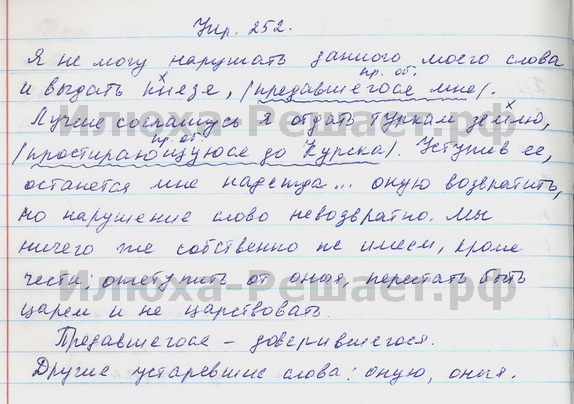 Упр. 252.
Я не могу нарушать данного моего слова
пр. об.
и выдать князе, /предавшегося мне/.
Лучше соглашусь я отдать туркам землю,
пр. об.
/простирающуюся до Курска/. Уступив ее,
останется мне надежда... оную возвратить,
но нарушение слово невозвратно. Мы
ничего же собственно не имеем, кроме
чести; отступить от оныя, перестать быть
царем и не царствовать.
Предавшегося – доверившегося.
Другие устаревшие слова: оную, оныя.
Илюха-Решает.рф
Илюха-Решает.рф